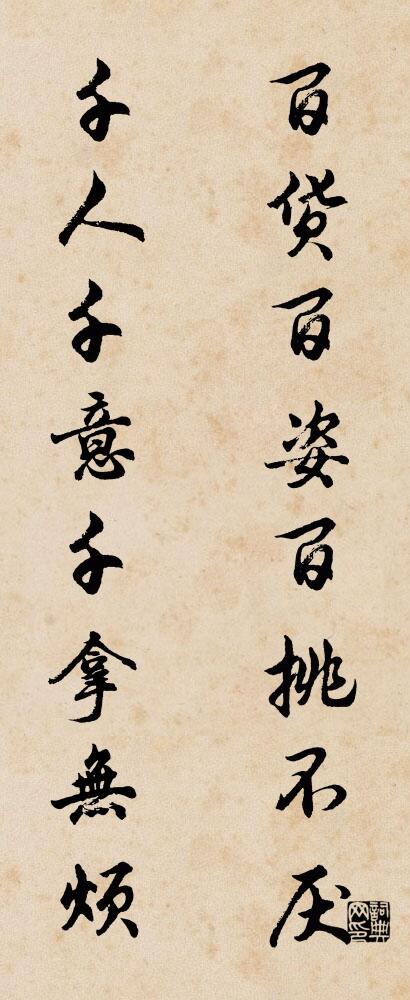 百货百姿百挑不厌
千人千意千拿無烦
詞典网印